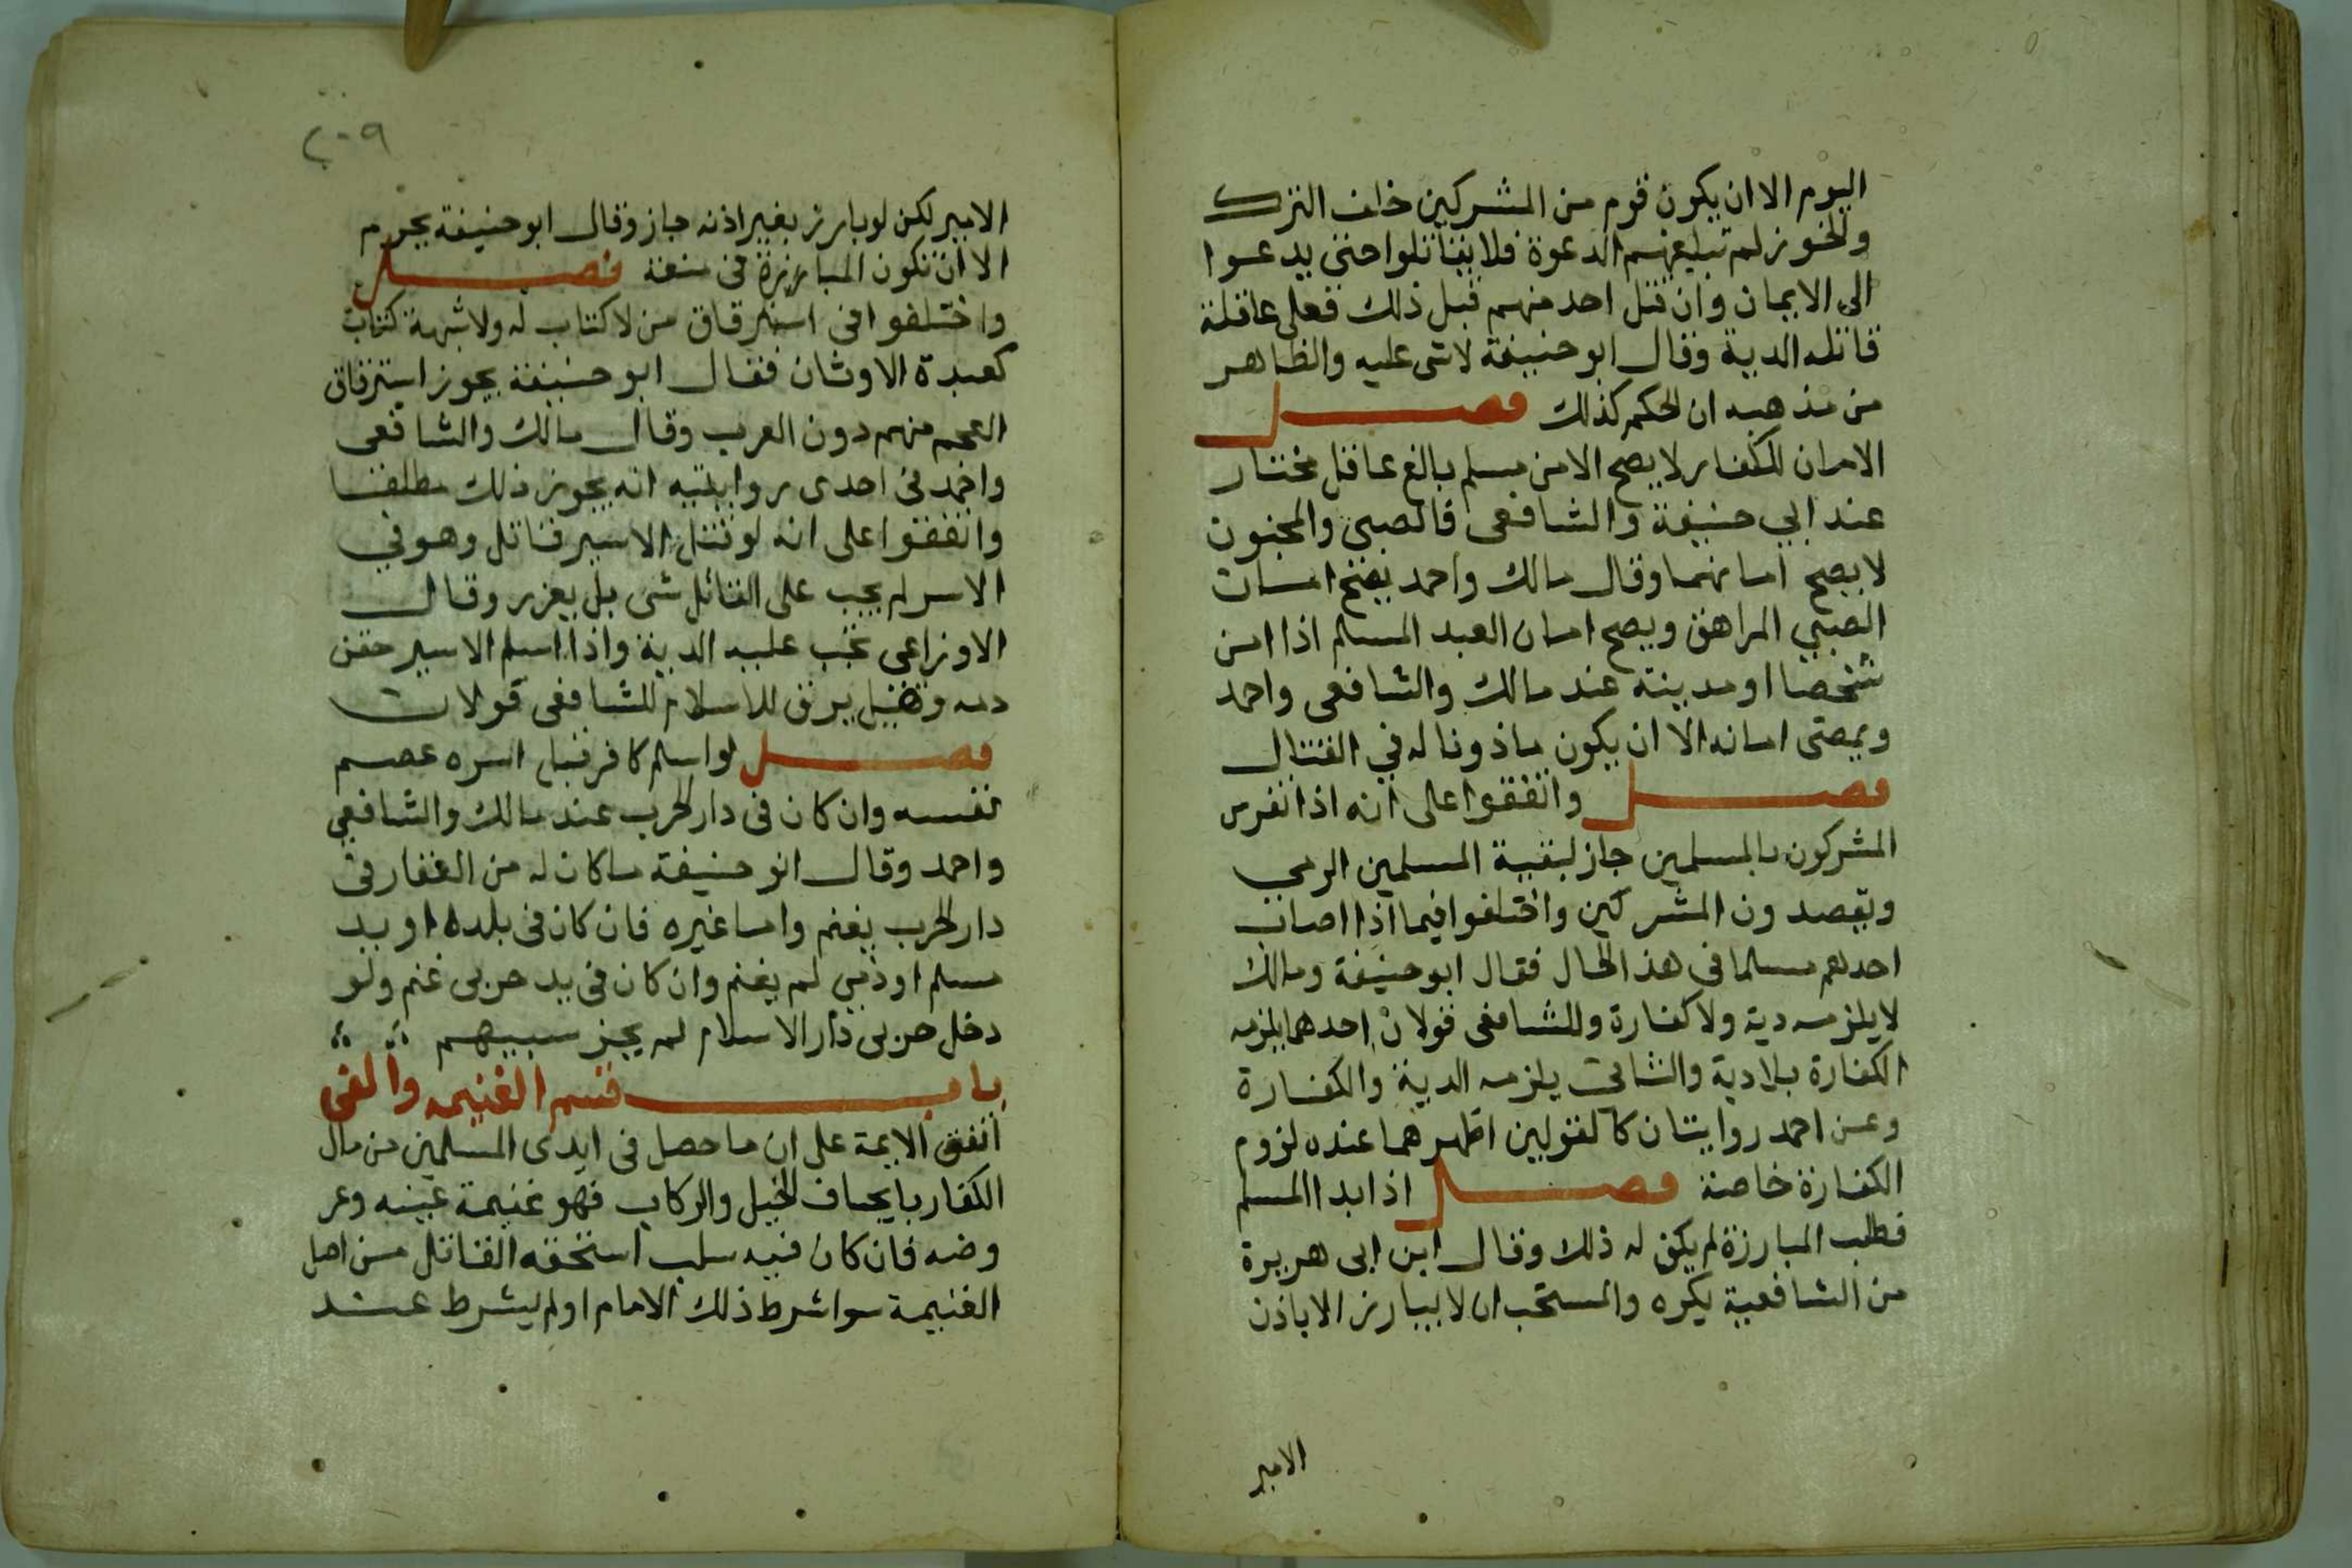 اليوم الا ان يكون قوم من المشركين خلف الترك
والخوز لم تبلغهم الدعوة فلا يقاتلوا حتى يدعوا
الى الايمان وان قتل احد منهم قبل ذلك فعلى عاقلة
قاتله الدية وقال ابو حنيفة لاشى عليه والظاهر
من مذهبه ان الحكم كذلك فصل
الامان للكفار لا يصح الا من مسلم بالغ عاقل مختار
عند ابي حنيفة والشافعى فالصبى والمجنون
لا يصح امانهما وقال مالك واحمد يصح امان
الصبي المراهق ويصح امان العبد المسلم اذا امن
شخصا او مدينة عند مالك والشافعى واحمد
ويمضى امانه الا ان يكون ماذونا له في القتال
فصل واتفقوا على انه اذا تفرس
المشركون بالمسلمين جاز لبقية المسلمين الرمي
ويقصدون المشركين واختلفوا فيما اذا اصاب
احدهم مسلما فى هذ الحال فقال ابو حنيفة ومالك
لا يلزمه دية ولا كفارة وللشافعى قولان احدهما يلزمه
الكفارة بلا دية والثانى يلزمه الدية والكفارة
وعن احمد روايتان كالقولين اظهرهما عنده لزوم
الكفارة خاصة فصل اذا بدا المسلم
فطلب المبارزة لم يكن له ذلك وقال ابن ابى هريرة
من الشافعية يكره والمستحب ان لا يبارز الا باذن
الامير
٢٠٩
الامير لكن لو بارز بغير اذنه جاز وقال ابو حنيفة يحرم
الا ان تكون المبارزة فى منعة فصل
واختلفوا فى استرقاق من لا كتاب له ولا شبهة كتاب
كعبدة الاوثان فقال ابو حنيفة يجوز استرقاق
العجم منهم دون العرب وقال مالك والشافعى
واحمد فى احدى روايتيه انه يجوز ذلك مطلقا
واتفقوا على انه لو قتل الاسير قاتل وهو في
الاسر لم يجب على القائل شى بل يعزر وقال
الاوزاعى تجب عليه الدية واذا اسلم الاسير حقن
دمه وقيل يرق للاسلام للشافعى قولان
فصل لو اسلم كافر قبل اسره عصم
نفسه وان كان فى دار الحرب عند مالك والشافعي
واحمد وقال ابو حنيفة ما كان له من العقار فى
دار الحرب يغنم واما غيره فان كان فى بلده او بيد
مسلم او ذمي لم يغنم وان كان فى يد حربى غنم ولو
دخل حربى دار الاسلام لم يجز سبيهم
باب قسم الغنيمه والفى
اتفق الايمة على ان ما حصل فى ايدى المسلمين من مال
الكفار بايجاف الخيل والركاب فهو غنيمة عينه وعر
وضه فان كان فيه سلب استحقه القاتل من اصل
الغنيمة سوا شرط ذلك الامام او لم يشرط عند